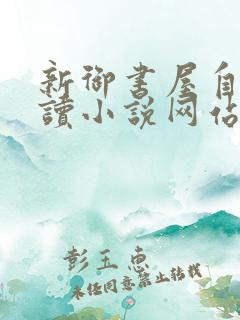 新御书屋自
讀小说网站
彭玉惠
未经同意禁止转载